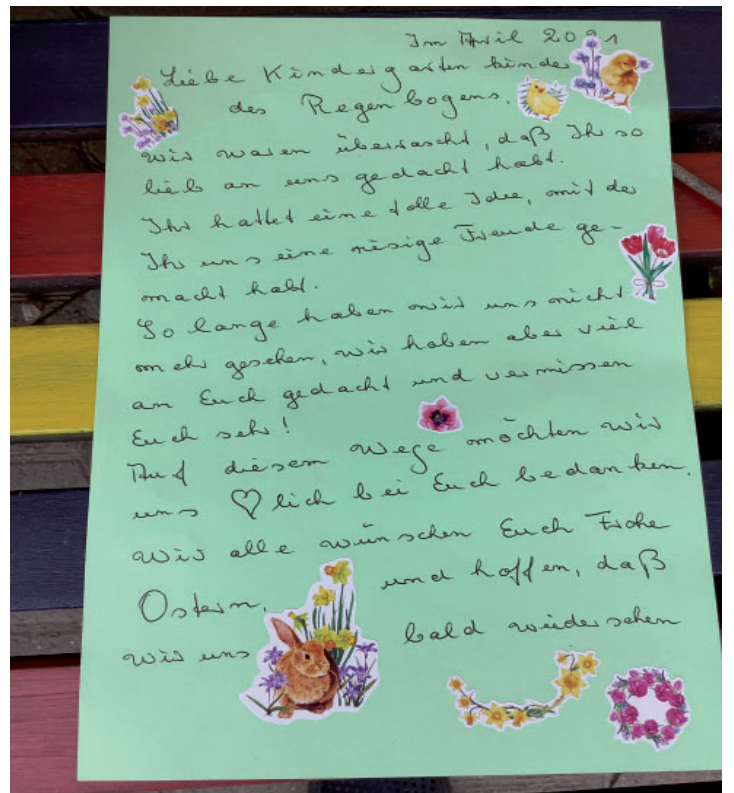 Im April 2021
Liebe Kindergartenkinder
des Regenbogens,
wir waren überrascht, daß Ihr so
lieb an uns gedacht habt.
Ihr hattet eine tolle Idee, mit der
Ihr uns eine riesige Freude ge-
macht habt.
So lange haben wir uns nicht
mehr gesehen, wir haben aber viel
an Euch gedacht und vermissen
Euch sehr!
Auf diesem Wege möchten wir
uns ♡lich bei Euch bedanken.
Wir alle wünschen Euch Frohe
Ostern, und hoffen, daß
wir uns bald wiedersehen